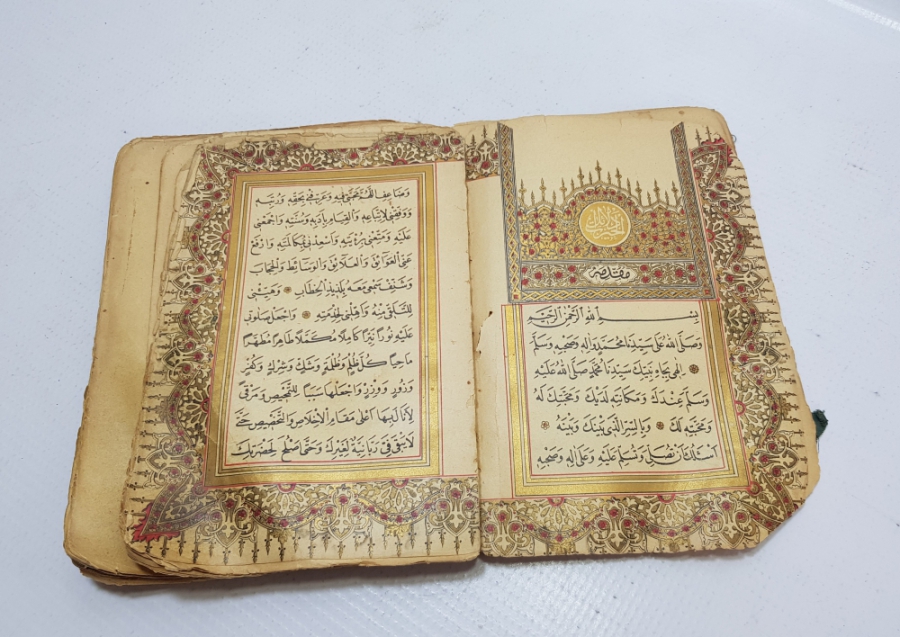 مقدمه
بِسْمِ اللهِ الرَّحْمٰنِ الرَّحِيْمِ
وَصَلَّى اللهُ عَلٰى سَيِّدِنَا مُحَمَّدٍ وَاٰلِهِ وَصَحْبِهِ وَسَلَّمَ
اِلٰهِى بِجَاهِ نَبِيِّكَ سَيِّدِنَا مُحَمَّدٍ صَلَّى اللهُ عَلَيْهِ
وَسَلَّمَ عِنْدَكَ وَمَكَانَتِهِ لَدَيْكَ وَمَحَبَّتِكَ لَهُ
وَمَحَبَّتِهِ لَكَ وَبِالسِّرِّ الَّذِى بَيْنَكَ وَبَيْنَهُ
اَسْئَلُكَ اَنْ تُصَلِّىَ وَتُسَلِّمَ عَلَيْهِ وَعَلٰى اٰلِهِ وَصَحْبِهِ
وَضَاعِفِ اللّٰهُمَّ مَحَبَّتِى فِيهِ وَعَرِّفْنِى بِحَقِّهِ وَرُتَبِهِ
وَوَفِّقْنِى لِاِتِّبَاعِهِ وَالْقِيَامِ بِاَدَبِهِ وَسُنَّتِهِ وَاجْمَعْنِى
عَلَيْهِ وَمَتِّعْنِى بِرُؤْيَتِهِ وَاَسْعِدْنِى بِمُكَالَمَتِهِ وَارْفَعْ
عَنِّى الْعَوَائِقَ وَالْعَلَائِقَ وَالْوَسَائِطَ وَالْحِجَابَ
وَشَنِّفْ سَمْعِى مَعَهُ بِلَذِيذِ الْخِطَابِ وَهَيِّئْنِى
لِلتَّلَقِّى مِنْهُ وَاَهِّلْنِى لِخِدْمَتِهِ وَاجْعَلْ صَلٰوتِى
عَلَيْهِ نُورًا نَيِّرًا كَامِلًا مُكَمَّلًا طَاهِرًا مُطَهِّرًا
مَاحِيًا كُلَّ ظُلْمٍ وَظُلْمَةٍ وَشَكٍّ وَشِرْكٍ وَكُفْرٍ
وَزُورٍ وَوِزْرٍ وَاجْعَلْهَا سَبَبًا لِلتَّمْحِيصِ وَمَرْقًى
لِاَنَالَ بِهَا اَعْلٰى مَقَامِ الْاِخْلَاصِ وَالتَّخْصِيصِ حَتّٰى
لَا يَبْقٰى فِىَّ رَبَّانِيَّةٌ لِغَيْرِكَ وَحَتّٰى اَصْلُحَ لِحَضْرَتِكَ